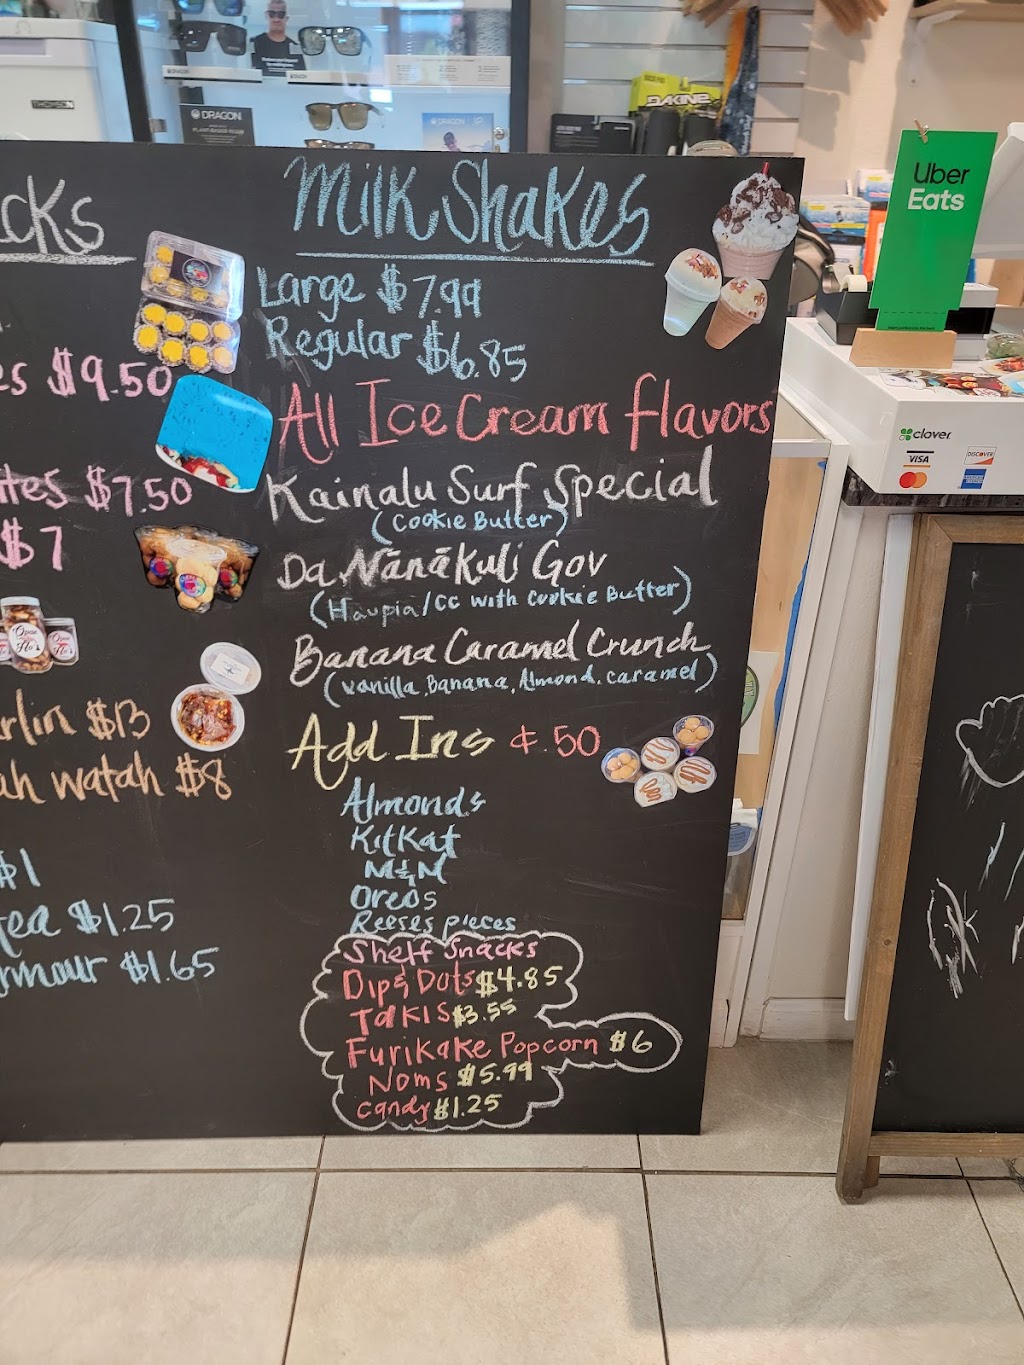 DRAGON
DRAGON
DAKINE
Uber
Eats
clover
VISA
DISCOVER
Milk Shakes
Large $7.99
Regular $6.85
All Ice Cream flavors
Kainalu Surf Special
(Cookie Butter)
Da Nānākuli Gov
(Haupia/CC with Cookie Butter)
Banana Caramel Crunch
(Vanilla, Banana, Almond, caramel)
Add Ins ¢.50
Almonds
KitKat
M&M
Oreos
Reeses pieces
Shelf Snacks
Dip & Dots $4.85
TAKIS $3.55
Furikake Popcorn $6
Noms $5.99
candy $1.25
cks
es $9.50
$7.50
$7
rlin $13
ah watah $8
$1
tea $1.25
$1.65